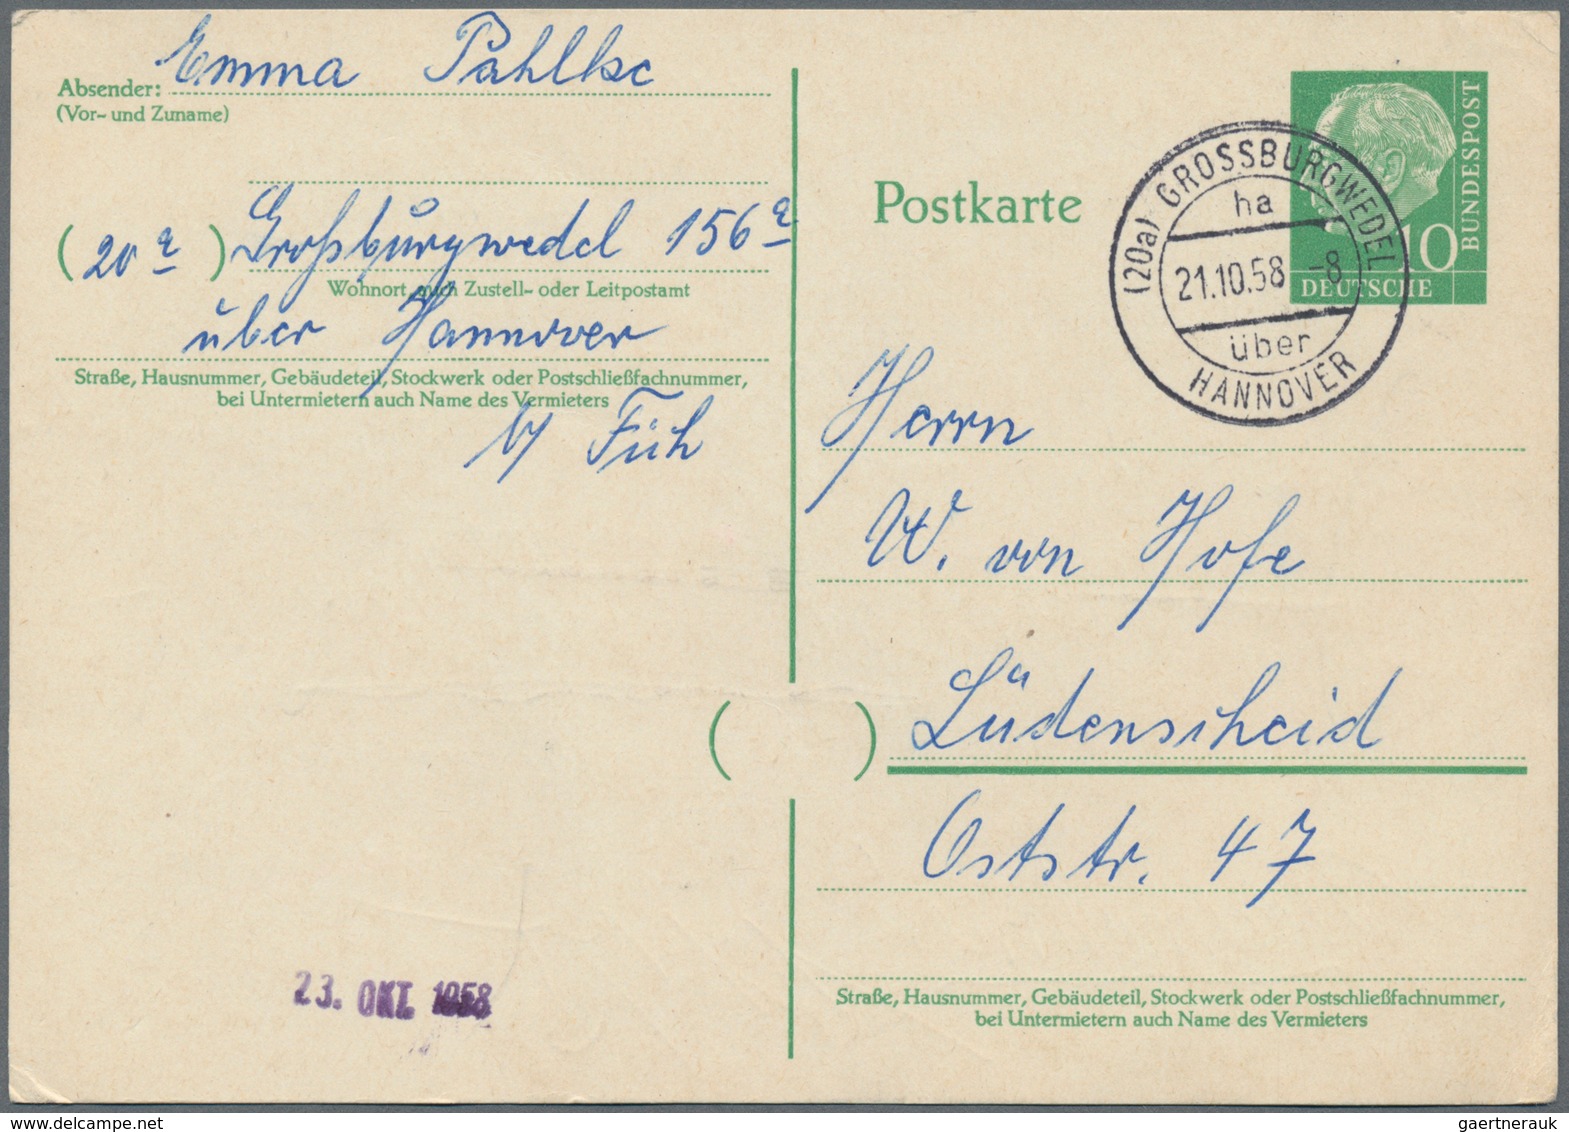 Emma Pahlke
Absender:
(Vor- und Zuname)
(20a) Großburgwedel 156a
Wohnort, auch Zustell- oder Leitpostamt
über Hannover
Straße, Hausnummer, Gebäudeteil, Stockwerk oder Postschließfachnummer,
bei Untermietern auch Name des Vermieters
b/ Füh
23. OKT. 1958
Postkarte
DEUTSCHE
BUNDESPOST
10
(20a) GROSSBURGWEDEL
ha
21.10.58 -8
über
HANNOVER
Herrn
W. von Hofe
Lüdenscheid
Oststr. 47
Straße, Hausnummer, Gebäudeteil, Stockwerk oder Postschließfachnummer,
bei Untermietern auch Name des Vermieters
gaertnerauk @ delcampe.net